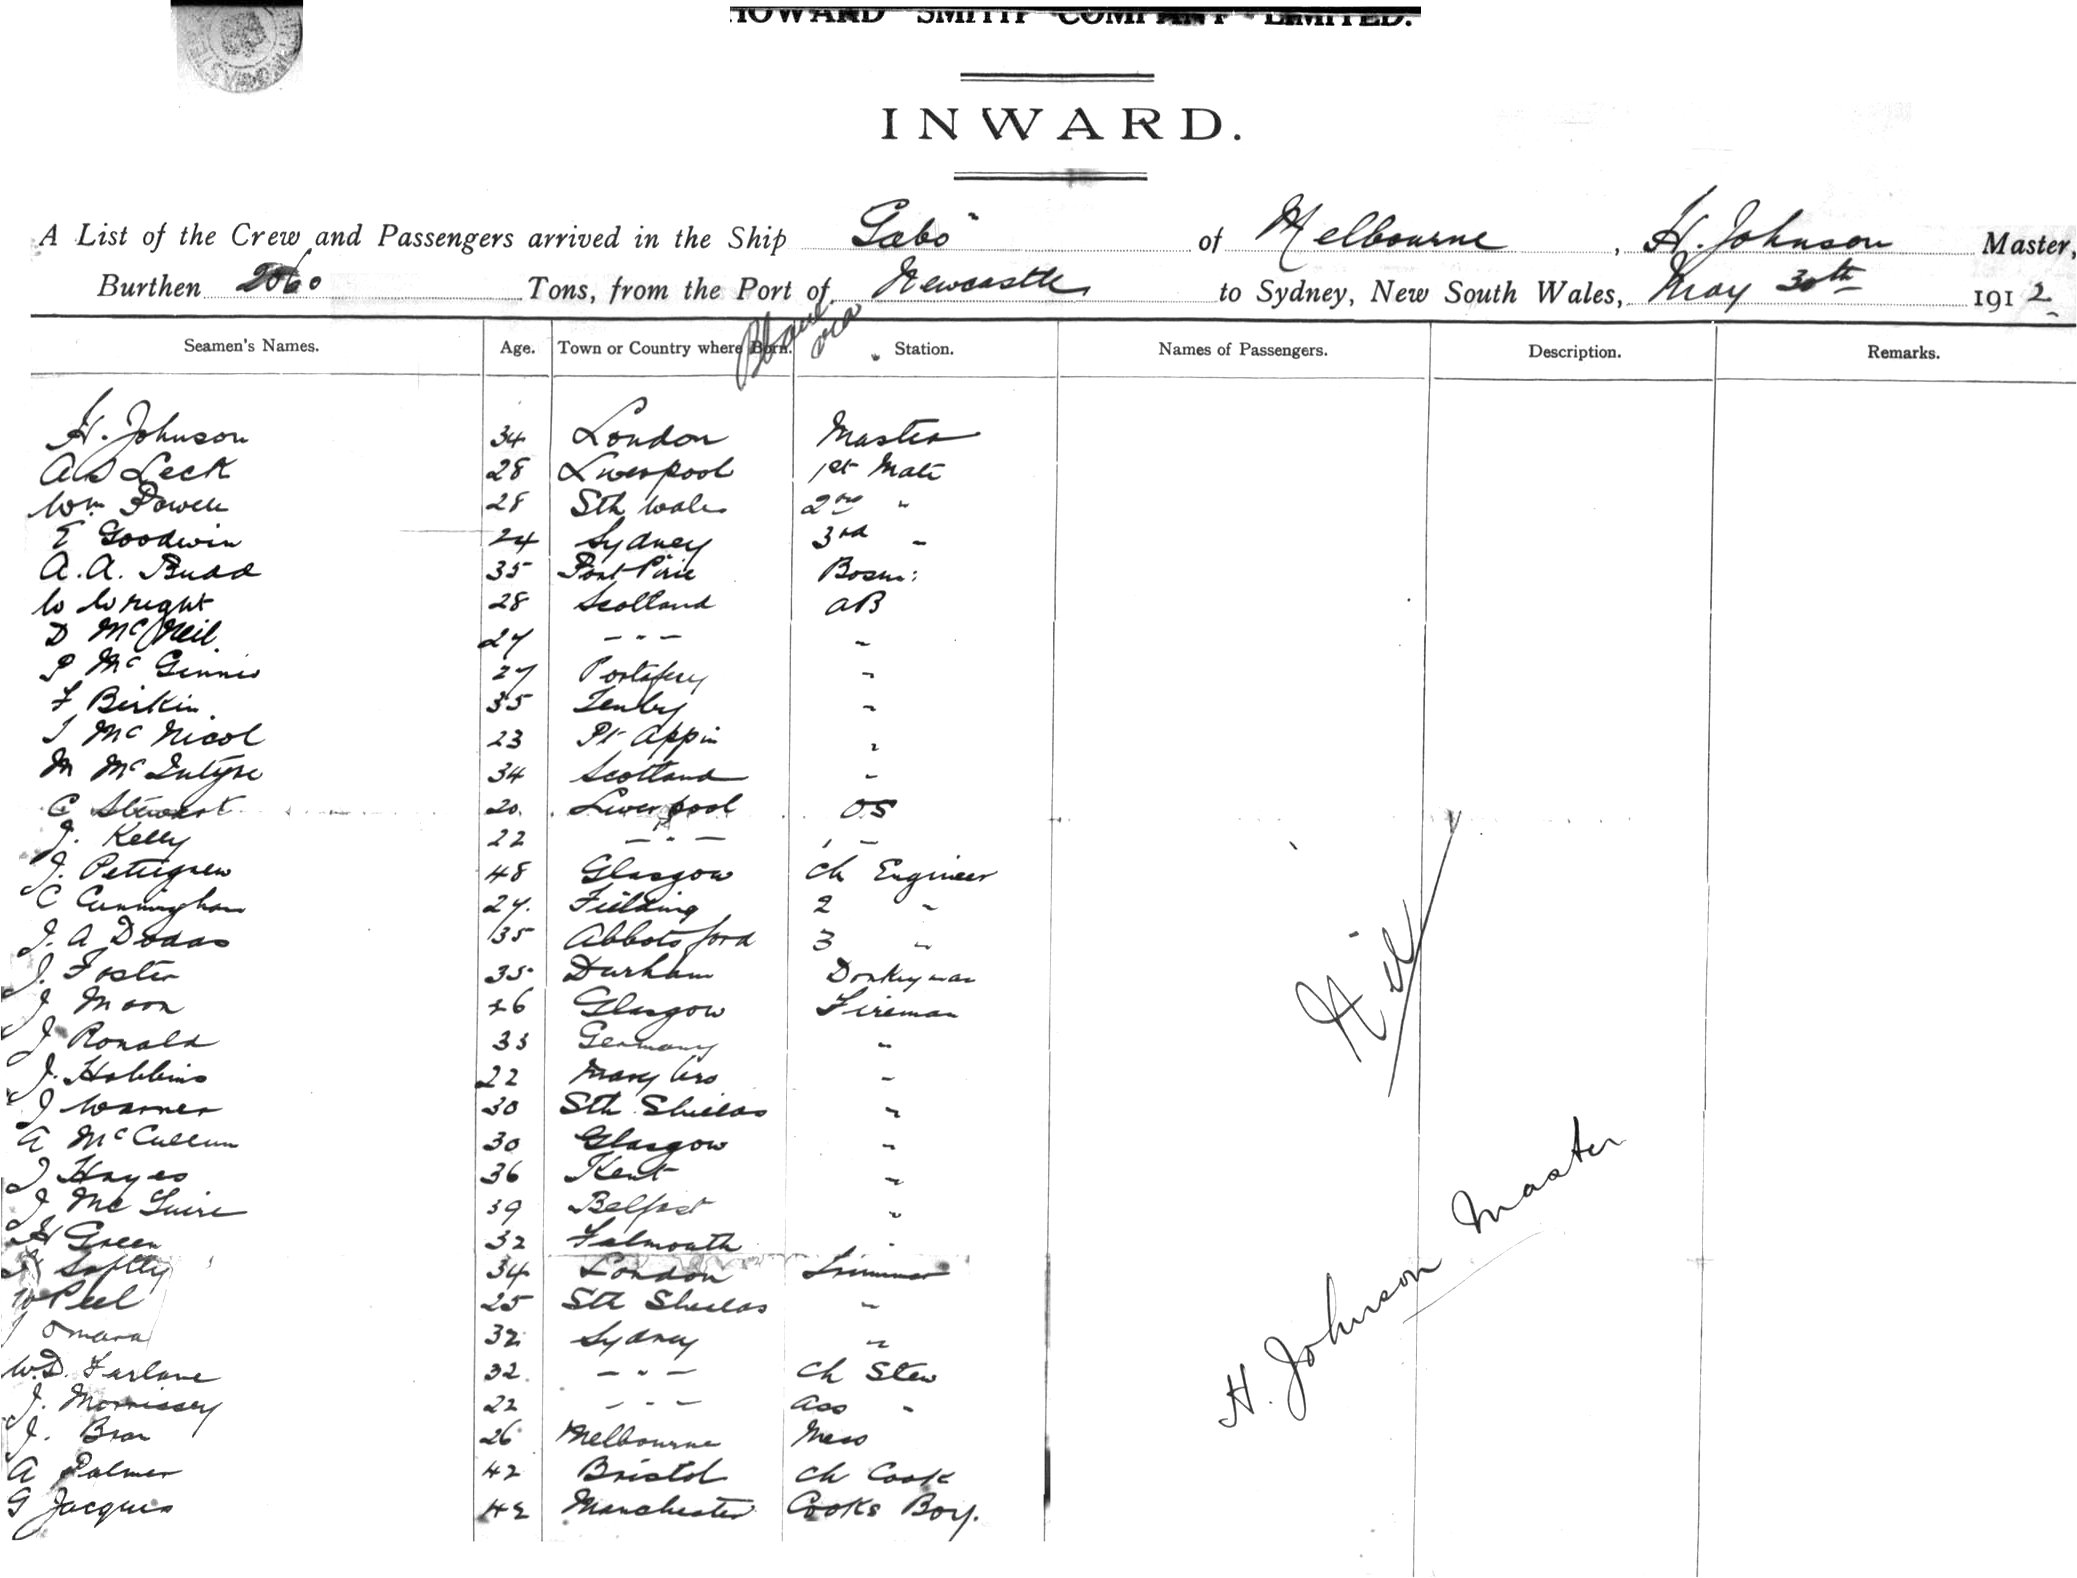 HOWARD SMITH COMPANY LIMITED.
INWARD.
A List of the Crew and Passengers arrived in the Ship Gabo of Melbourne, H. Johnson Master,
Burthen 2060 Tons, from the Port of Newcastle to Sydney, New South Wales, May 30th 1912
Seamen's Names. Age. Town or Country where Born. Station. Names of Passengers. Description. Remarks.
H. Johnson 34 London Master
A S Leck 28 Liverpool 1st Mate
Wm Powell 28 Sth Wales 2nd "
E Goodwin 24 Sydney 3rd "
A. A. Budd 35 Port Pirie Bosun:
W Wright 28 Scotland AB
D McNeil 27 - " - "
P McGinnis 27 Portafery "
F Birkin 35 Tenby "
J McNicol 23 Pt Appin "
M McIntyre 34 Scotland "
C Stewart 20 Liverpool OS
J. Kelly 22 - " - "
J. Pettigrew 48 Glasgow Ch Engineer
C Cunningham 27. Fielding 2 "
J. A Dodds 35 Abbotsford 3 "
J. Foster 35 Durham Donkeyman
J Moon 26 Glasgow Fireman
J Ronald 33 Germany "
J. Hobbins 22 "
J Warner 30 Sth Shields "
A McCullum 30 Glasgow "
J Hayes 36 Kent "
J McGuire 39 Belfast "
H Green 32 Falmouth "
34 London Trimmer
W Peel 25 Sth Shields "
J Omara 32 Sydney "
W. D. Farlane 32 - " - Ch Stew
J. Morrissey 22 - " - Ass "
J. 26 Melbourne Mess
A Palmer 42 Bristol Ch Cook
G Jacques 42 Manchester Cooks Boy.
Nil
H. Johnson Master